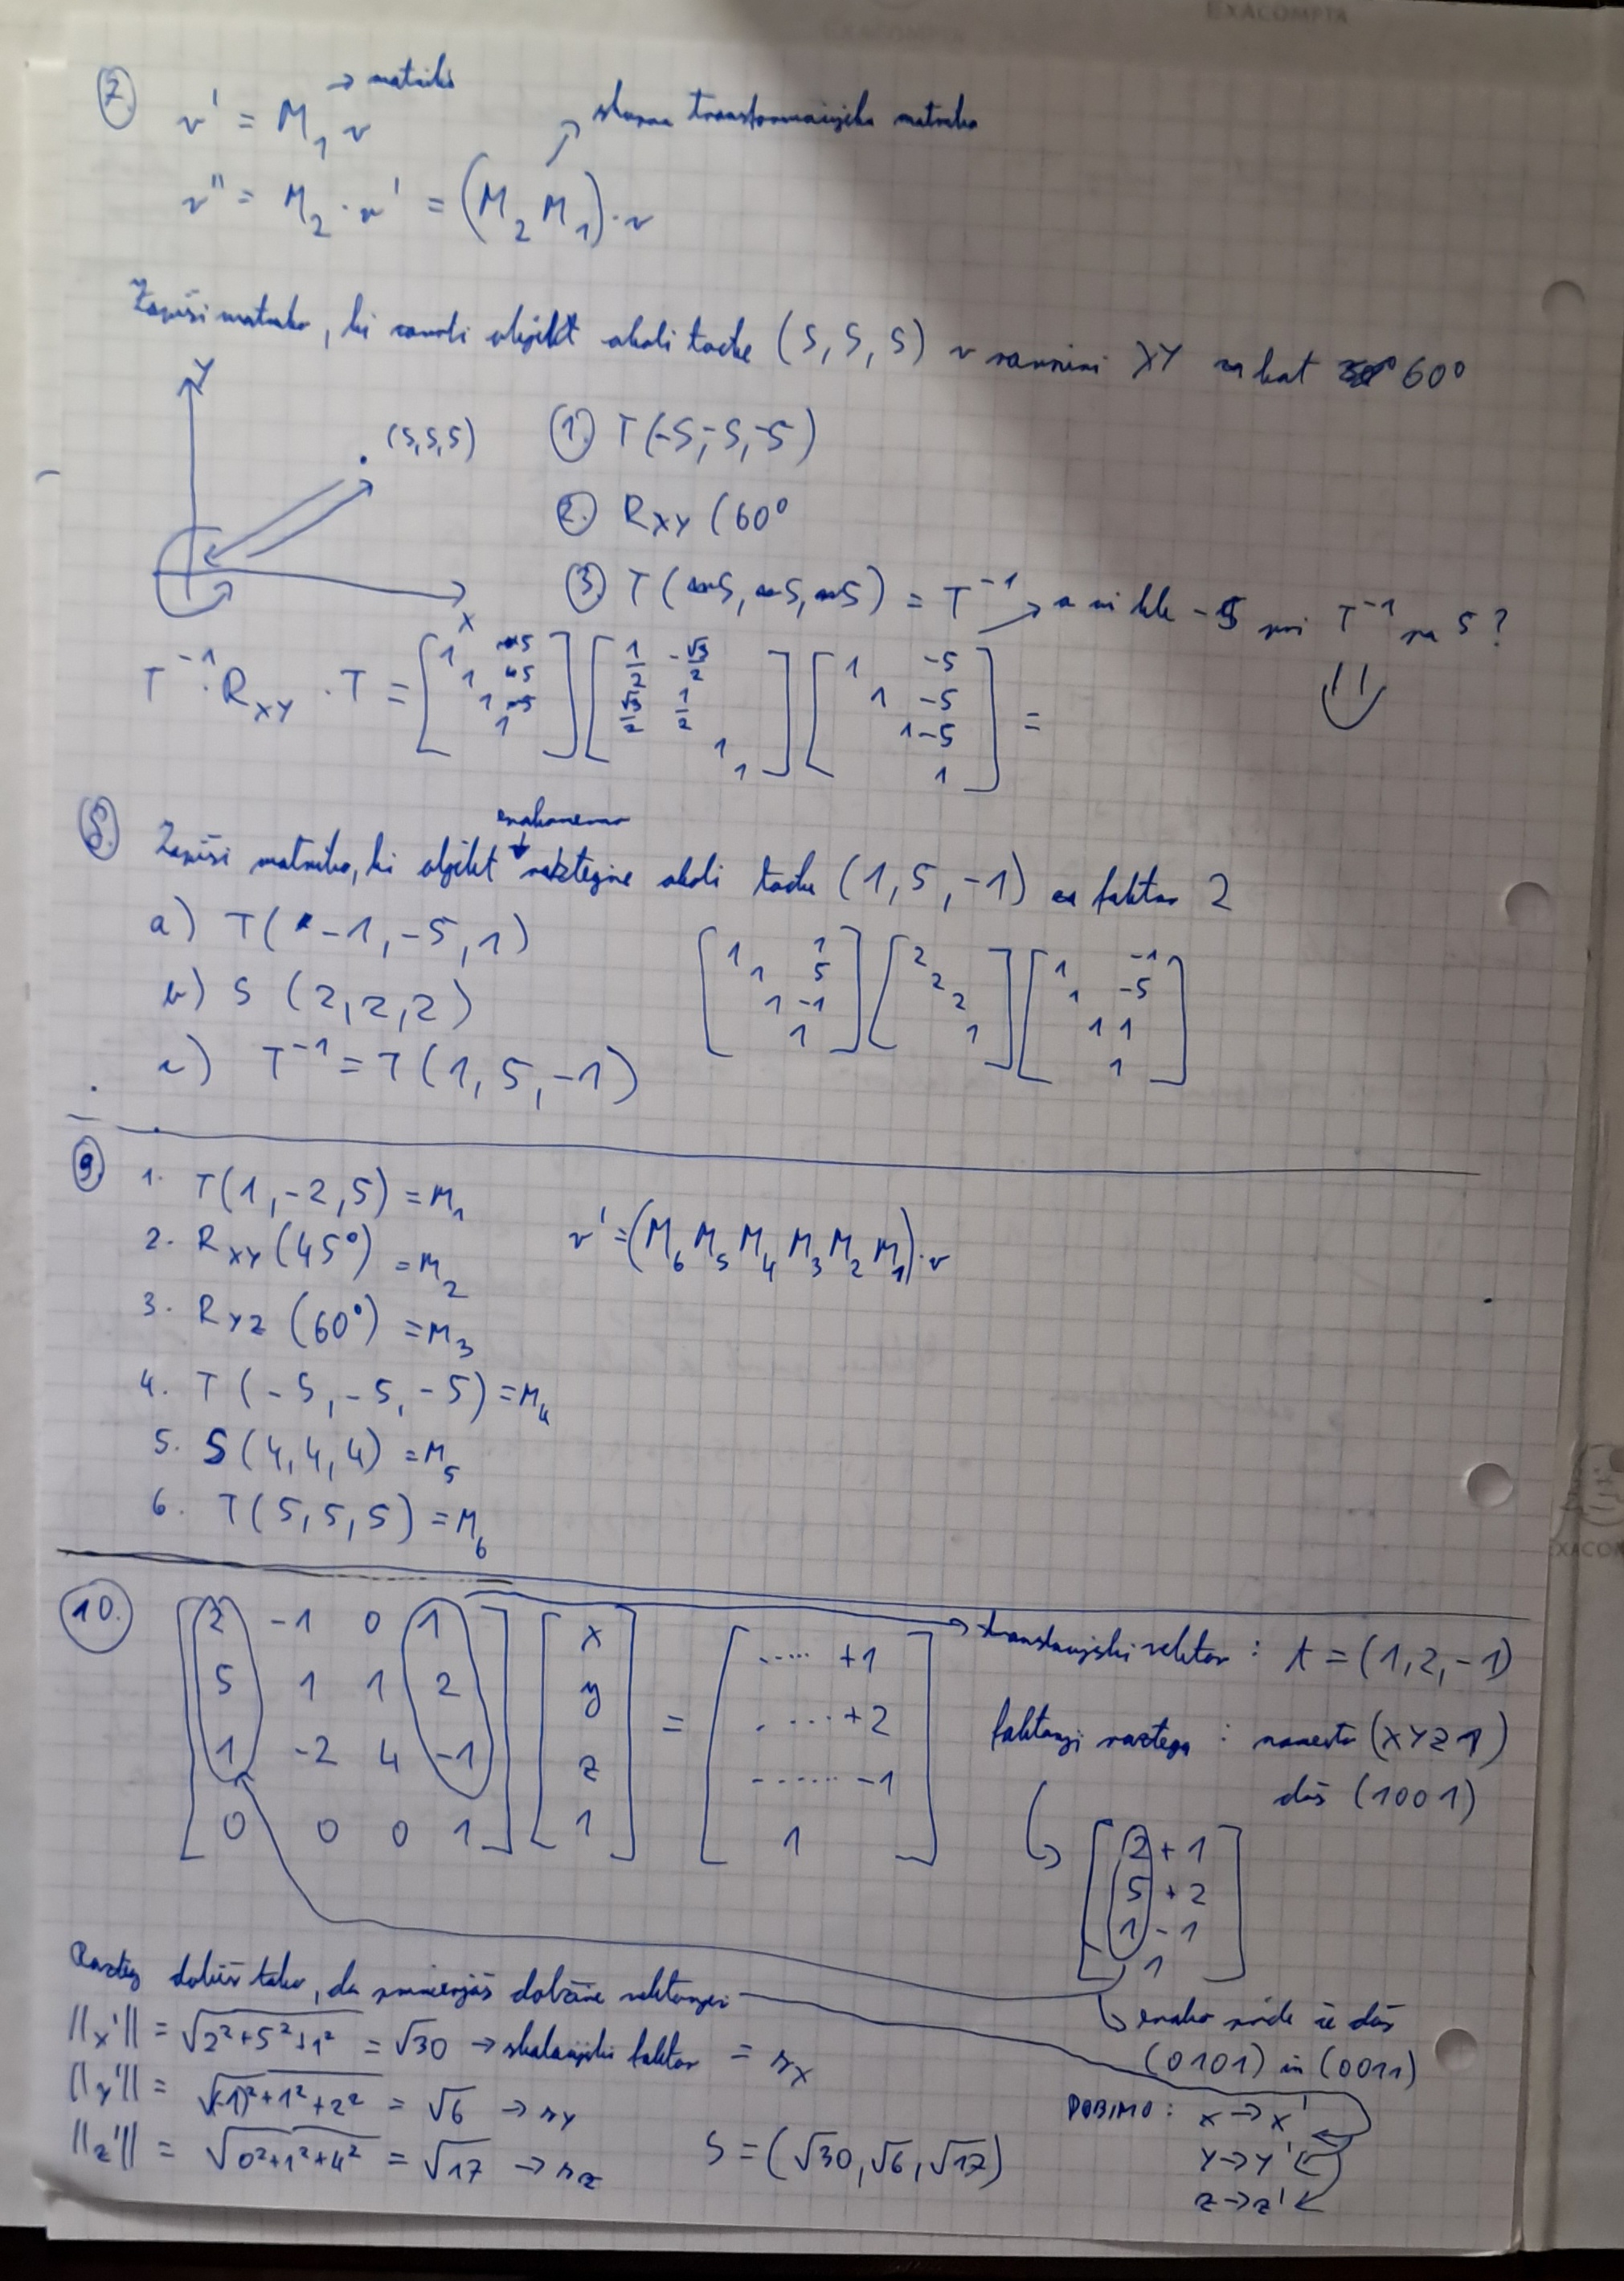 EXACOMPTA
7. v' = M₁ v → matrika
v'' = M₂ · v' = (M₂ M₁) · v → skupna transformacijska matrika
Zapiši matriko, ki zavrti objekt okoli točke (5, 5, 5) v ravnini XY za kot 60°
Y
(5,5,5)
X
1. T(-5,-5,-5)
2. R_XY (60°
3. T(5, 5, 5) = T⁻¹ → a ni kle -5 pri T⁻¹ pa 5?
T⁻¹ · R_XY · T = [1 5 1 5 1 5 1] [1/2 -√3/2 √3/2 1/2 1 1] [1 -5 1 -5 1 -5 1] =
8. Zapiši matriko, ki objekt enakomerno raztegne okoli točke (1, 5, -1) za faktor 2
a) T(-1, -5, 1)
b) S (2, 2, 2)
c) T⁻¹ = T(1, 5, -1)
[1 1 1 5 1 -1 1] [2 2 2 1] [1 -1 1 -5 1 1 1]
9.
1. T(1, -2, 5) = M₁
2. R_XY (45°) = M₂
3. R_YZ (60°) = M₃
4. T(-5, -5, -5) = M₄
5. S(4, 4, 4) = M₅
6. T(5, 5, 5) = M₆
v' = (M₆ M₅ M₄ M₃ M₂ M₁) · v
10.
[2 -1 0 1] [x] [..... +1]
[5 1 1 2] [y] = [. .... +2]
[1 -2 4 -1] [z] [...... -1]
[0 0 0 1] [1] [1]
→ translacijski vektor : t = (1, 2, -1)
faktorji raztega : namesto (X Y Z 1)
daš (1 0 0 1)
[2 + 1]
[5 + 2]
[1 - 1]
[1]
↳ enako pride če daš
(0 1 0 1) in (0 0 1 1)
DOBIMO : X → X'
Y → Y'
Z → Z'
Razteg dobiš tako, da primerjaš dolžine vektorjev
||x'|| = √2²+5²+1² = √30 → skalacijski faktor = s_x
||y'|| = √(-1)²+1²+2² = √6 → s_y
||z'|| = √0²+1²+4² = √17 → s_z
S = (√30, √6, √17)